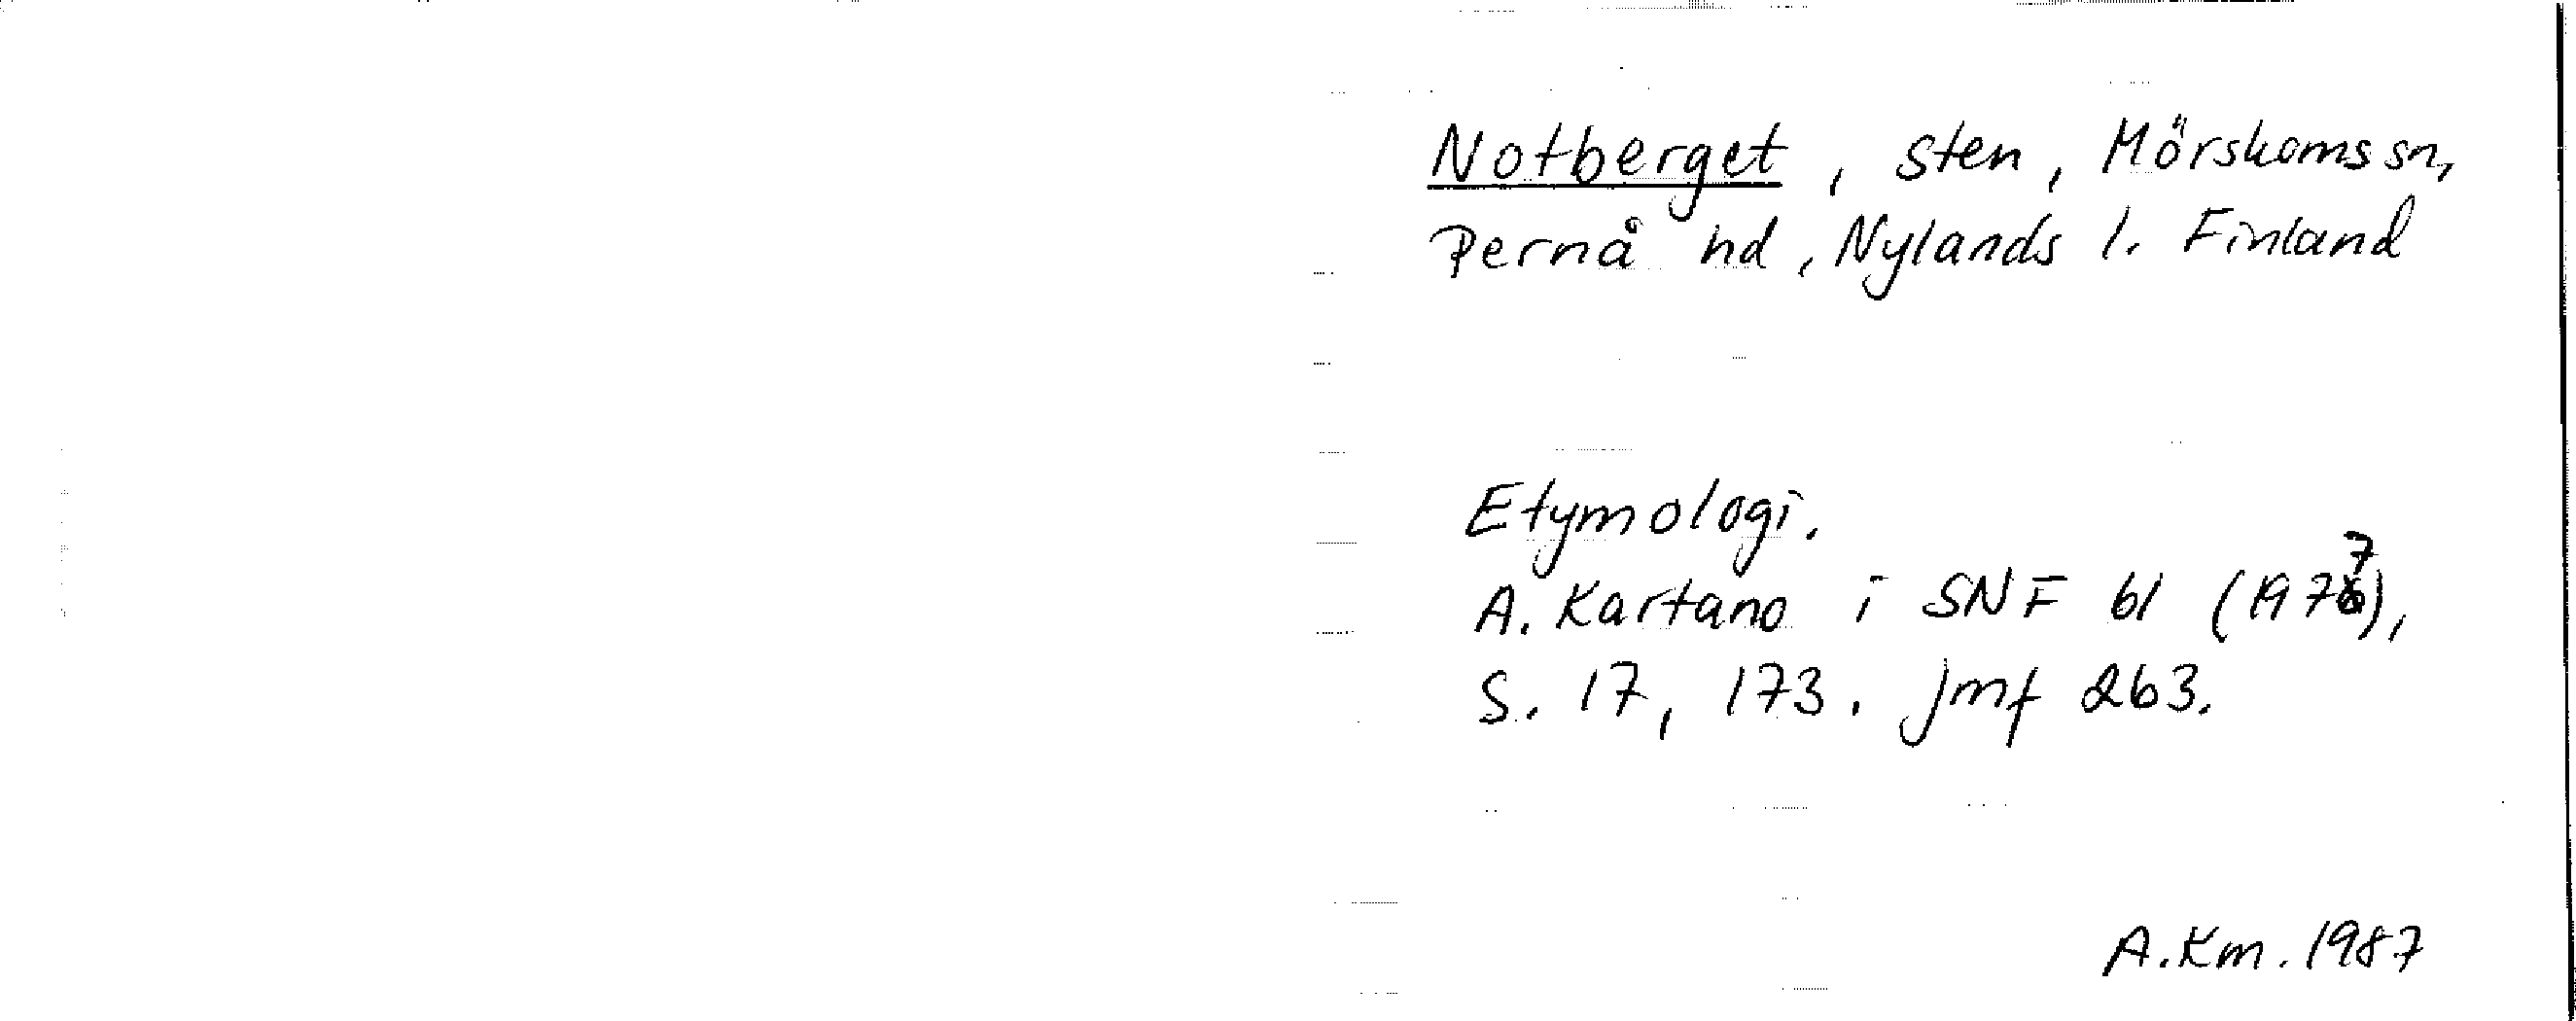 Notberget, sten, Mörskoms sn,
Pernå hd, Nylands l. Finland
Etymologi.
A. Kartano i SNF 61 (1977),
S. 17, 173. Jmf 263.
A.Km. 1987